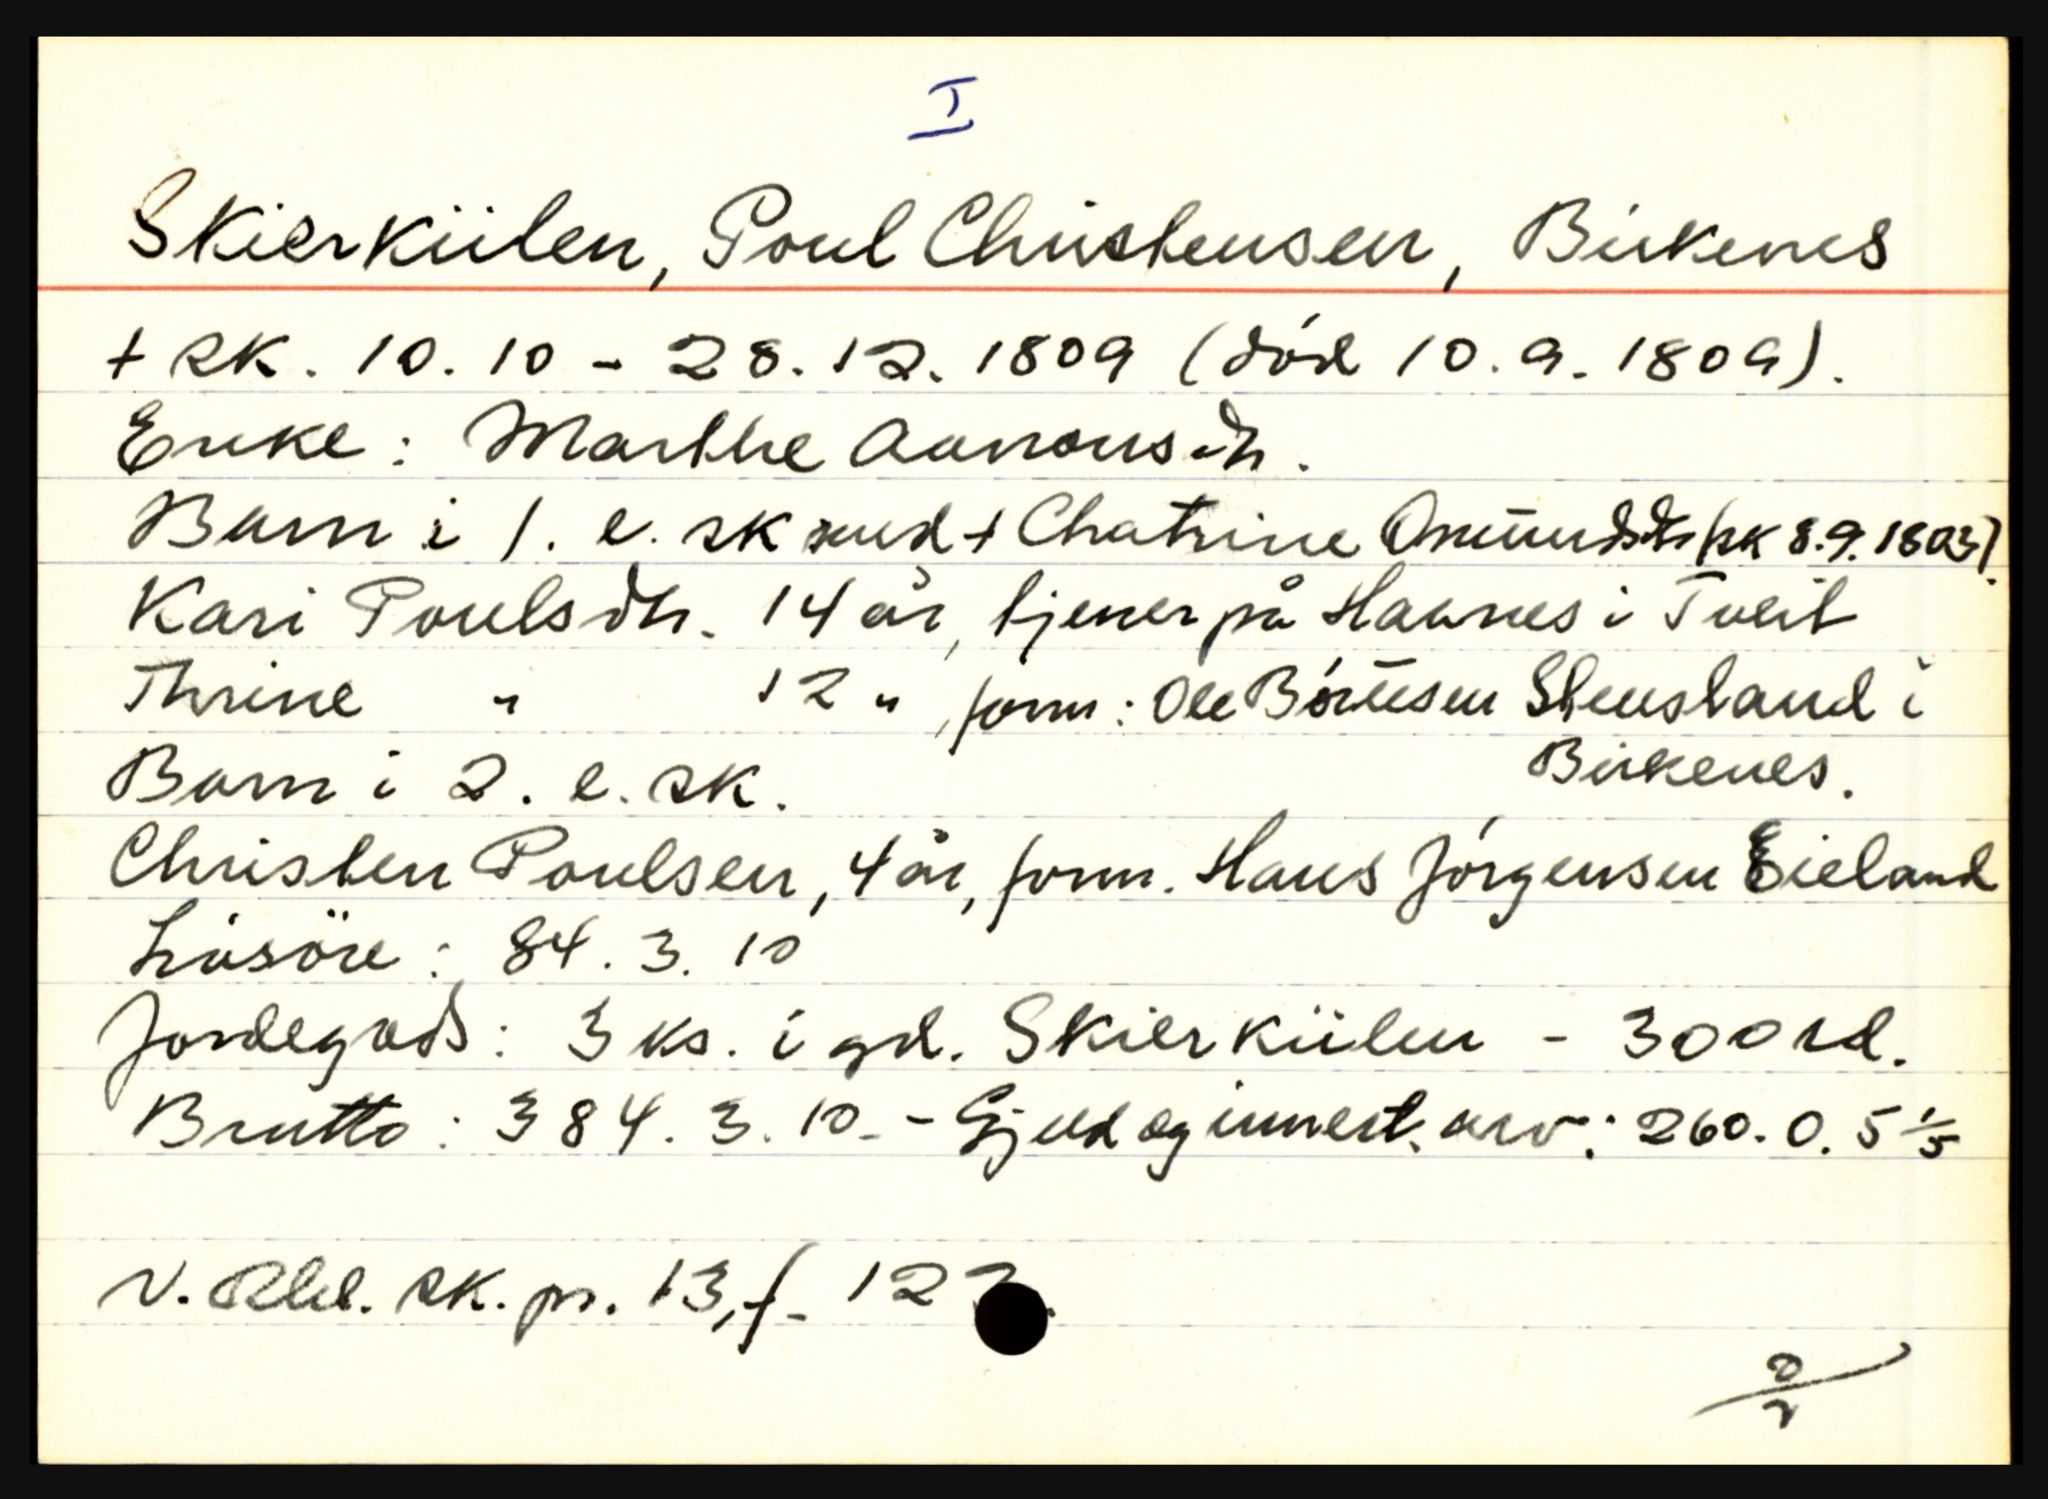 I
Skierkülen, Poul Christensen, Birkenes
+ sk. 10.10 - 28.12.1809 (död 10.9.1809).
Enke: Marthe Aanonsdtr.
Barn i 1. e.sk med + Chatrine Omundsdtr (sk 8.9.1803).
Kari Poulsdtr. 14 år, tjener på Hannes i Tveit
Thrine " 12 ", form: Ole Börresen Stensland i
Birkenes.
Barn i 2. e.sk.
Christen Poulsen, 4 år, form. Hans Jörgensen Eieland
Lösöre: 84.3.10
Jordegods: 3 ks. i gd. Skierkülen - 300 rd.
Brutto: 384.3.10. - Gjeld og innest. arv: 260.0.5 1/5
N. Rbl. sk. pr. 13, f. 12